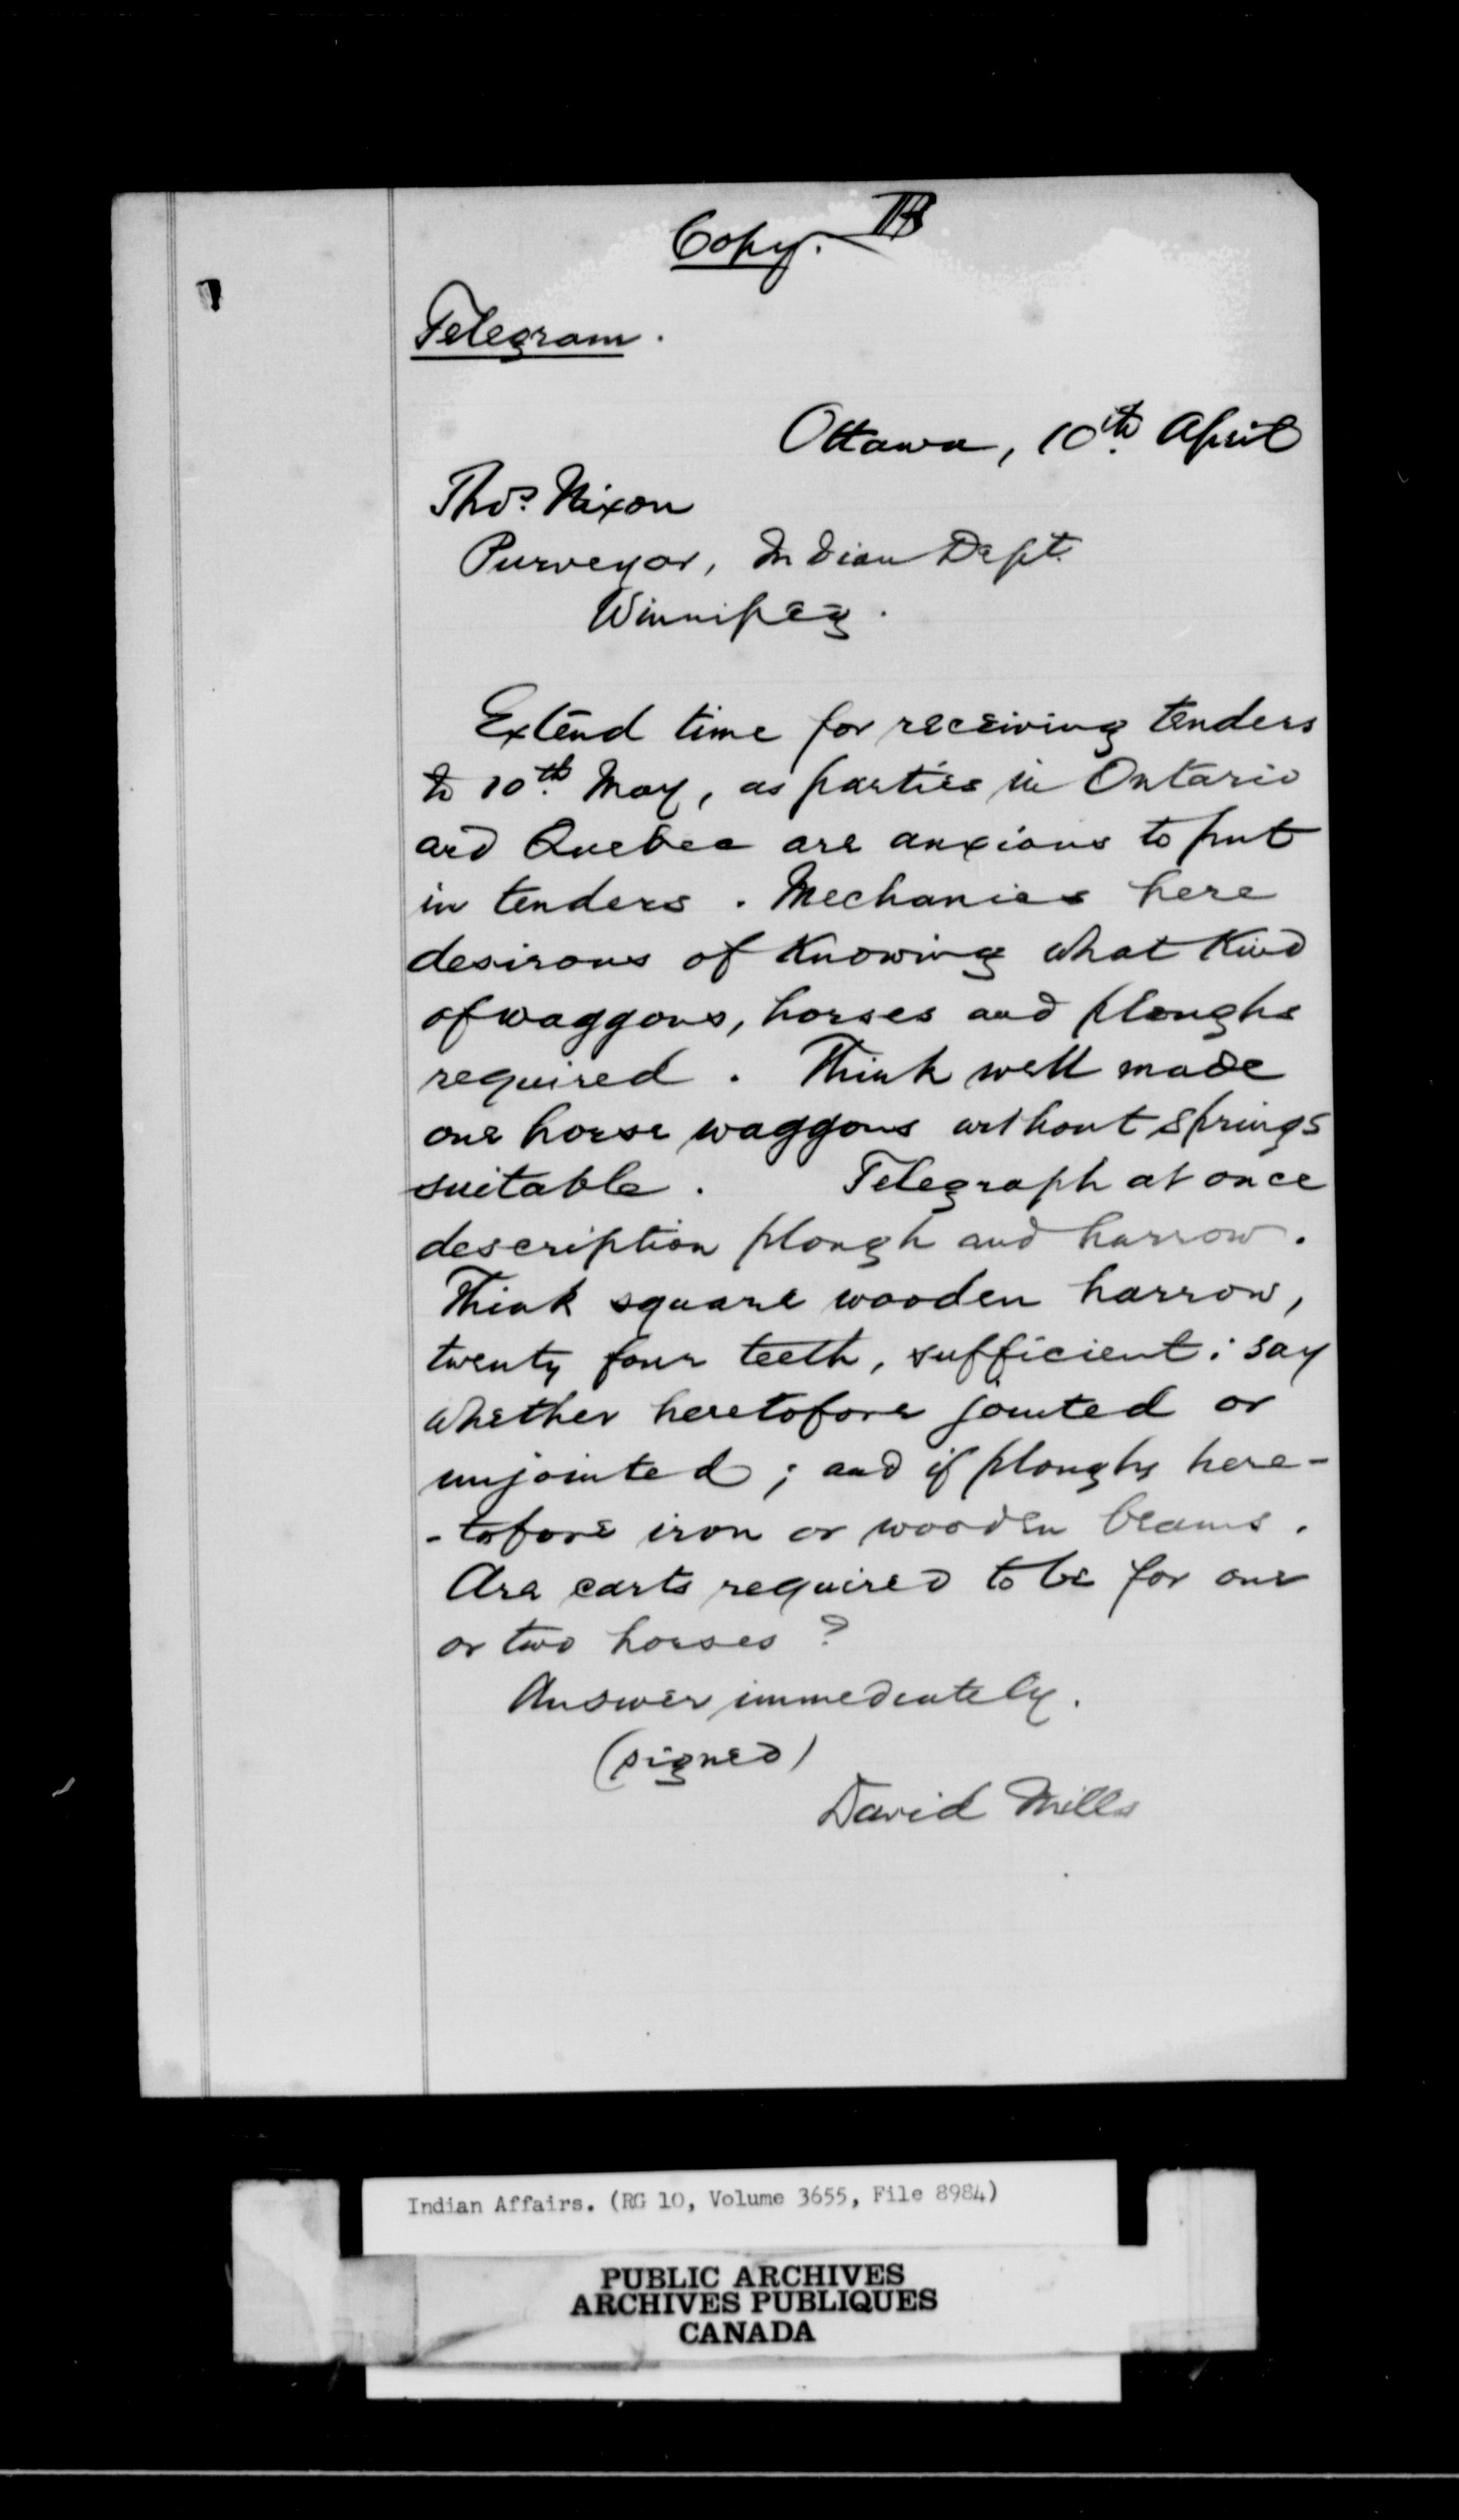 Copy.
Telegram.
Ottawa, 10th. April
Thos. Nixon
Purveyor, Indian Dept.
Winnipeg.
Extend time for receiving tenders
to 10th. May, as parties in Ontario
and Quebec are anxious to put
in tenders. Mechanics here
desirous of knowing what kind
of waggons, horses and ploughs
required. Think well made
one horse waggons without springs
suitable. Telegraph at once
description plough and harrow.
Think square wooden harrow,
twenty four teeth, sufficient: say
whether heretofore jointed or
unjointed; and if ploughs here-
-tofore iron or wooden beams.
Are carts required to be for one
or two horses?
Answer immediately.
(signed)
David Mills
Indian Affairs. (RG 10, Volume 3655, File 8984)
PUBLIC ARCHIVES
ARCHIVES PUBLIQUES
CANADA